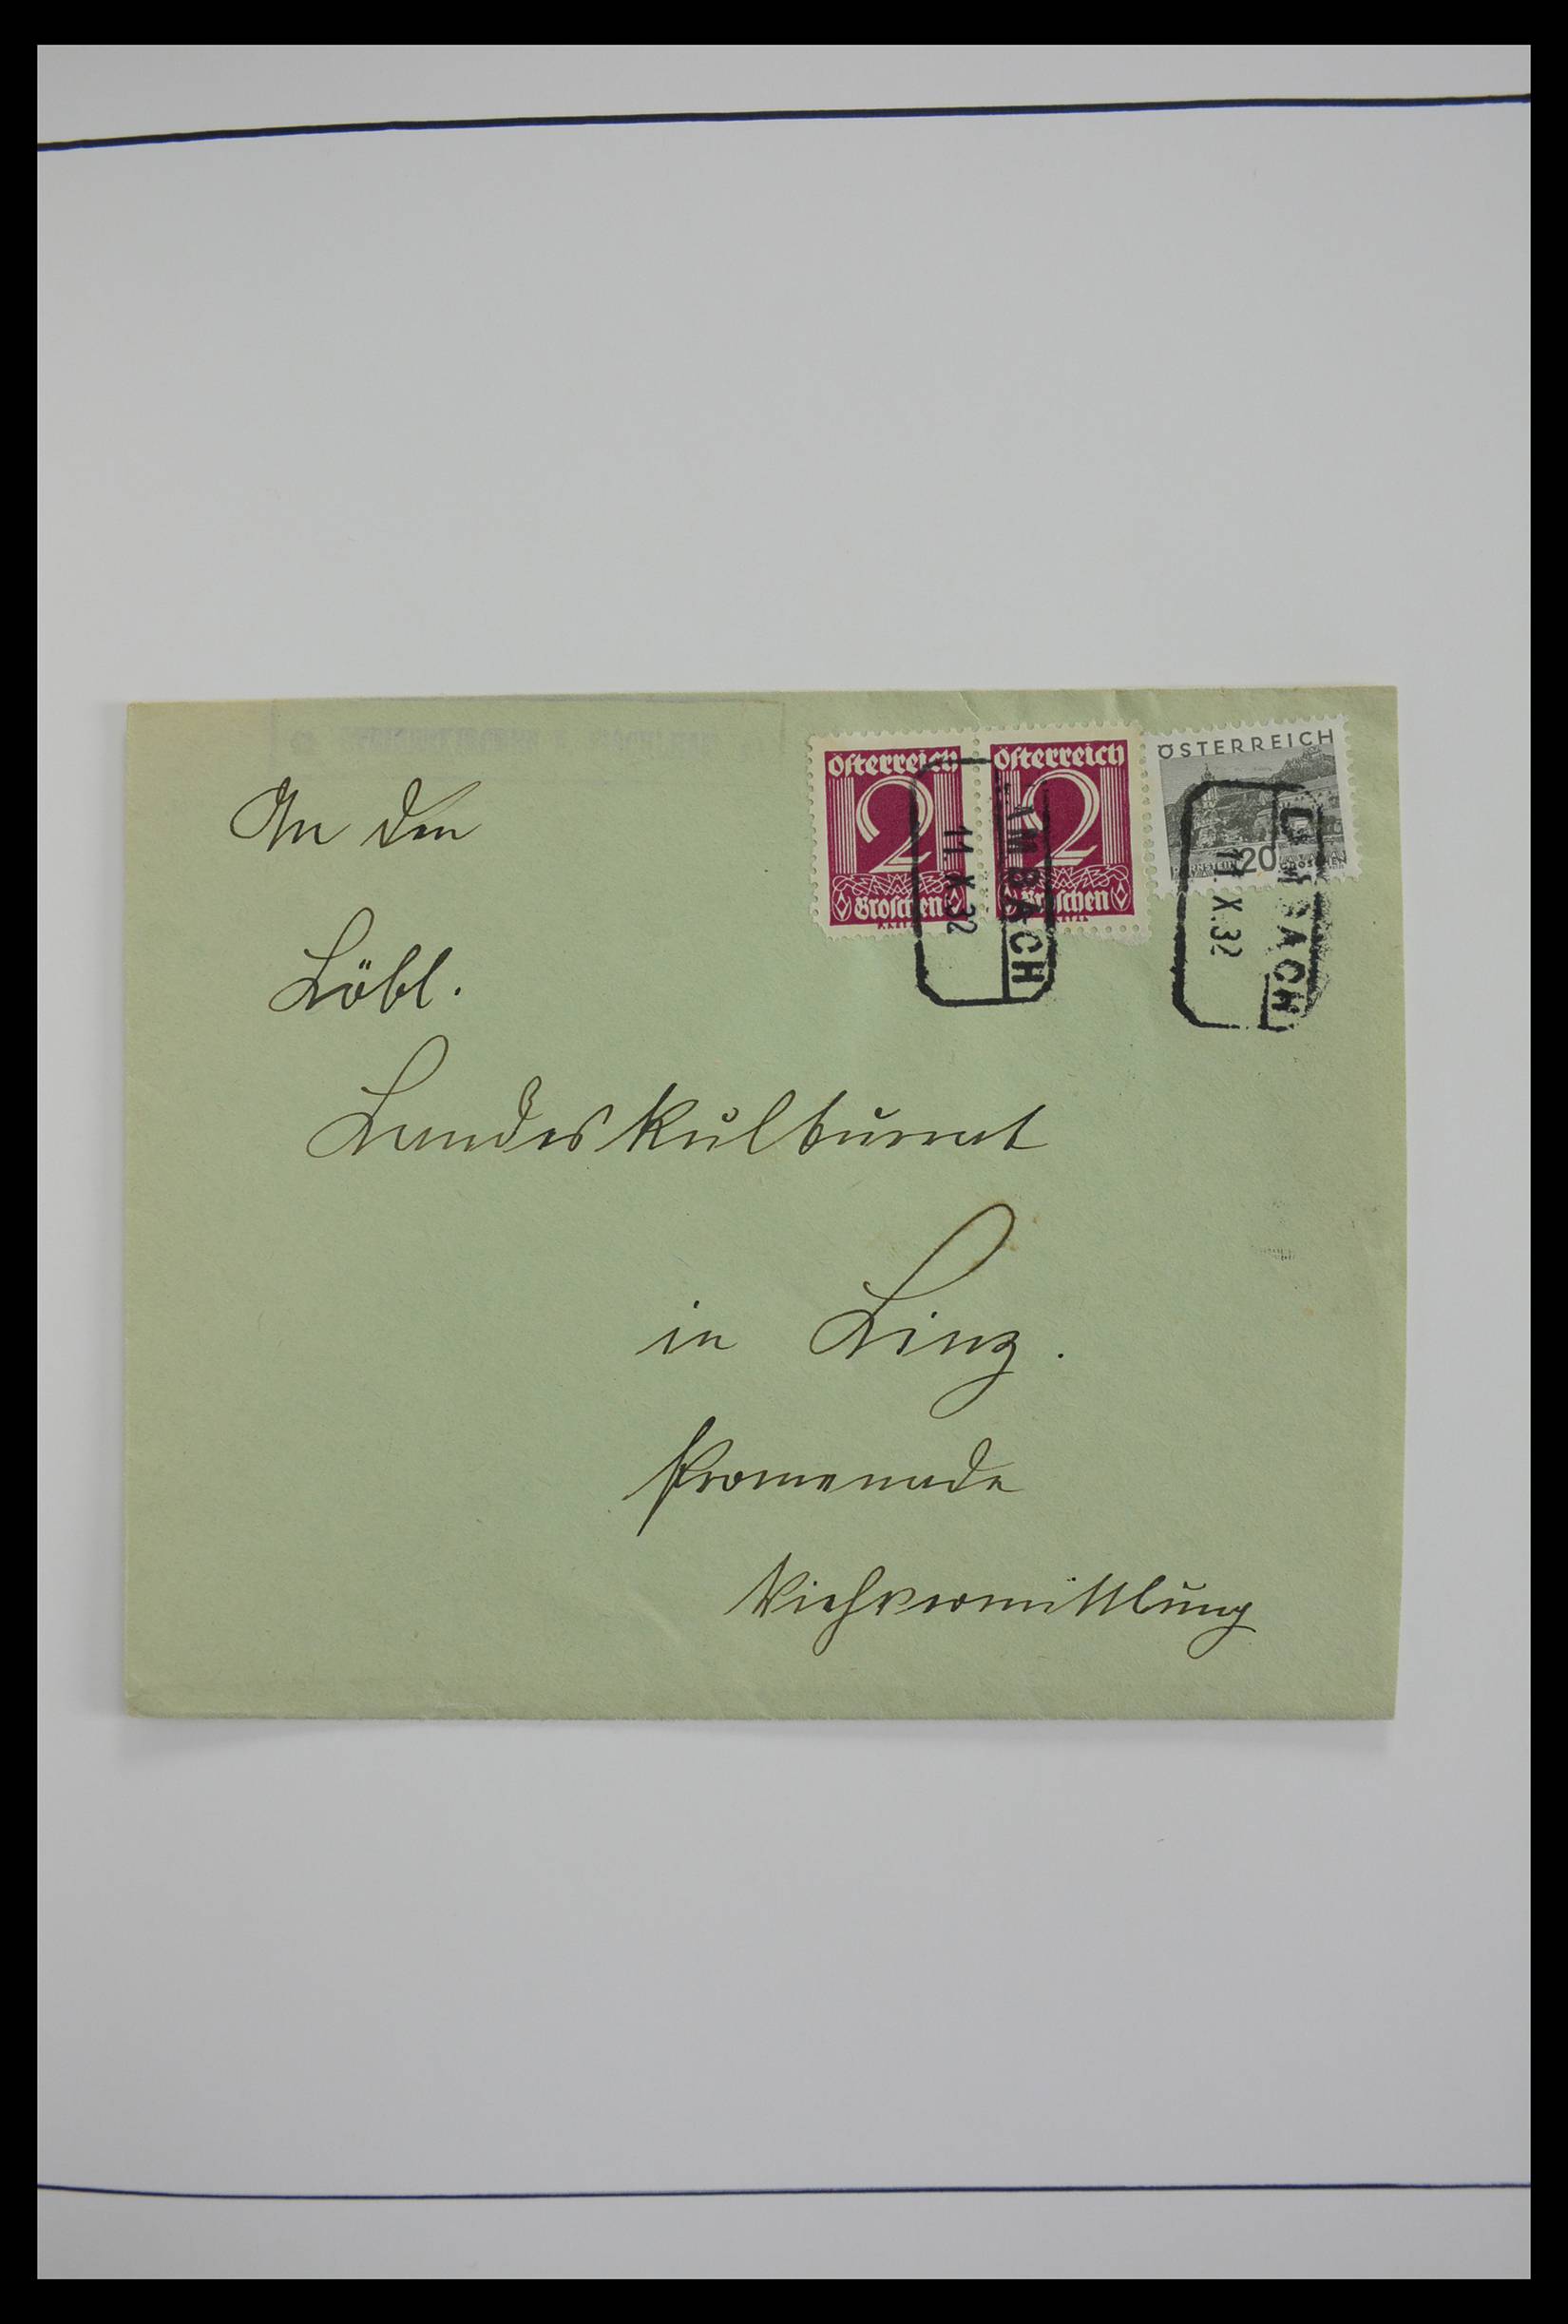 Österreich
2
Groschen
Österreich
2
Groschen
ÖSTERREICH
20
GROSCHEN
11.X.32
11.X.32
An den
Löbl.
Landeskulturrat
in Linz.
Promenade
Viehvermittlung